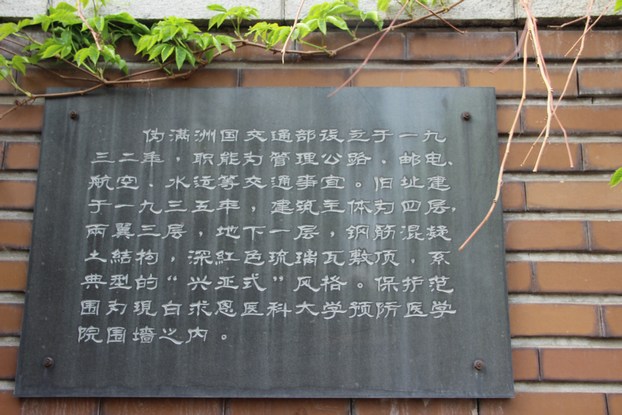 伪满洲国交通部设立于一九
三二年，职能为管理公路、邮电、
航空、水运等交通事宜。旧址建
于一九三五年，建筑主体为四层，
两翼三层，地下一层，钢筋混凝
土结构，深红色琉璃瓦敷顶，系
典型的“兴亚式”风格。保护范
围为现白求恩医科大学预防医学
院围墙之内。